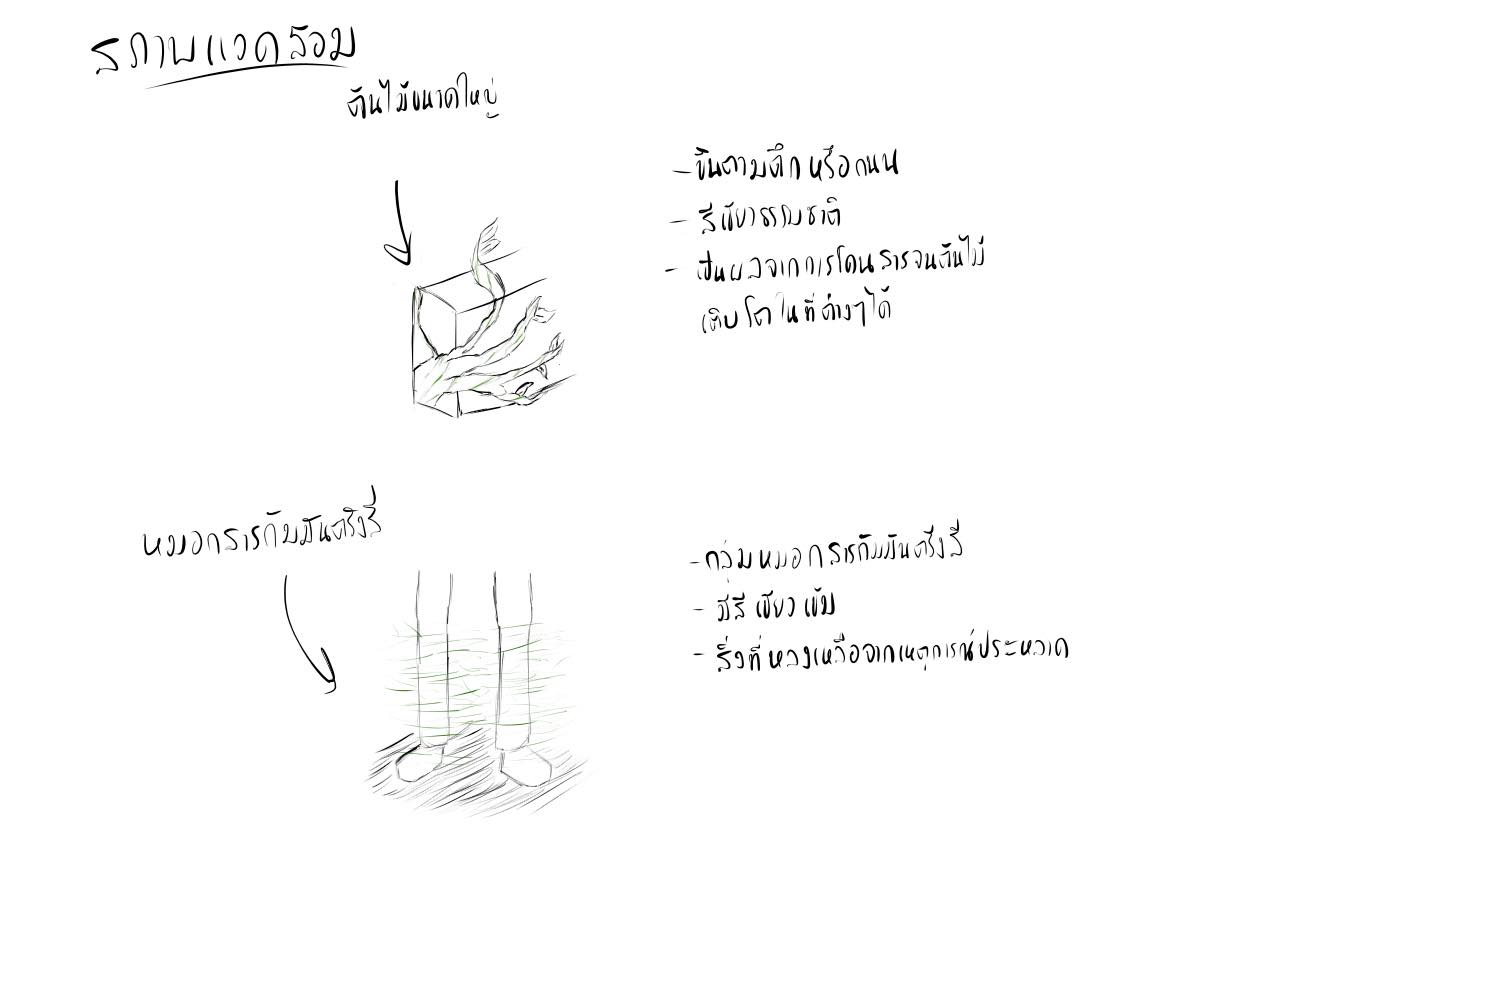 สภาพแวดล้อม
ต้นไม้ขนาดใหญ่
- ขึ้นตามตึกหรือถนน
- สีเขียวธรรมชาติ
- เป็นผลจากการโดนสารจนต้นไม้
เติบโตในที่ต่างๆได้
หมอกสารกัมมันตรังสี
- กลุ่มหมอกสารกัมมันตรังสี
- มีสีเขียวเข้ม
- สิ่งที่หลงเหลือจากเหตุการณ์ประหลาด